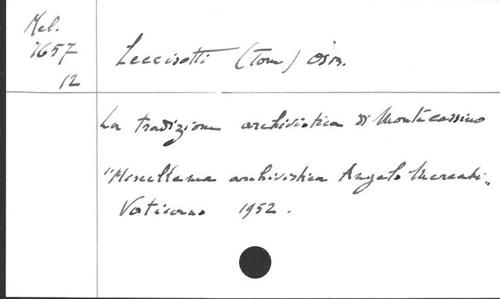 Mel.
1657
12
Leccisotti (Tom) OSB.
La tradizione archivistica di Montecassino
"Miscellanea archivistica Angelo Mercati"
Vaticano 1952.